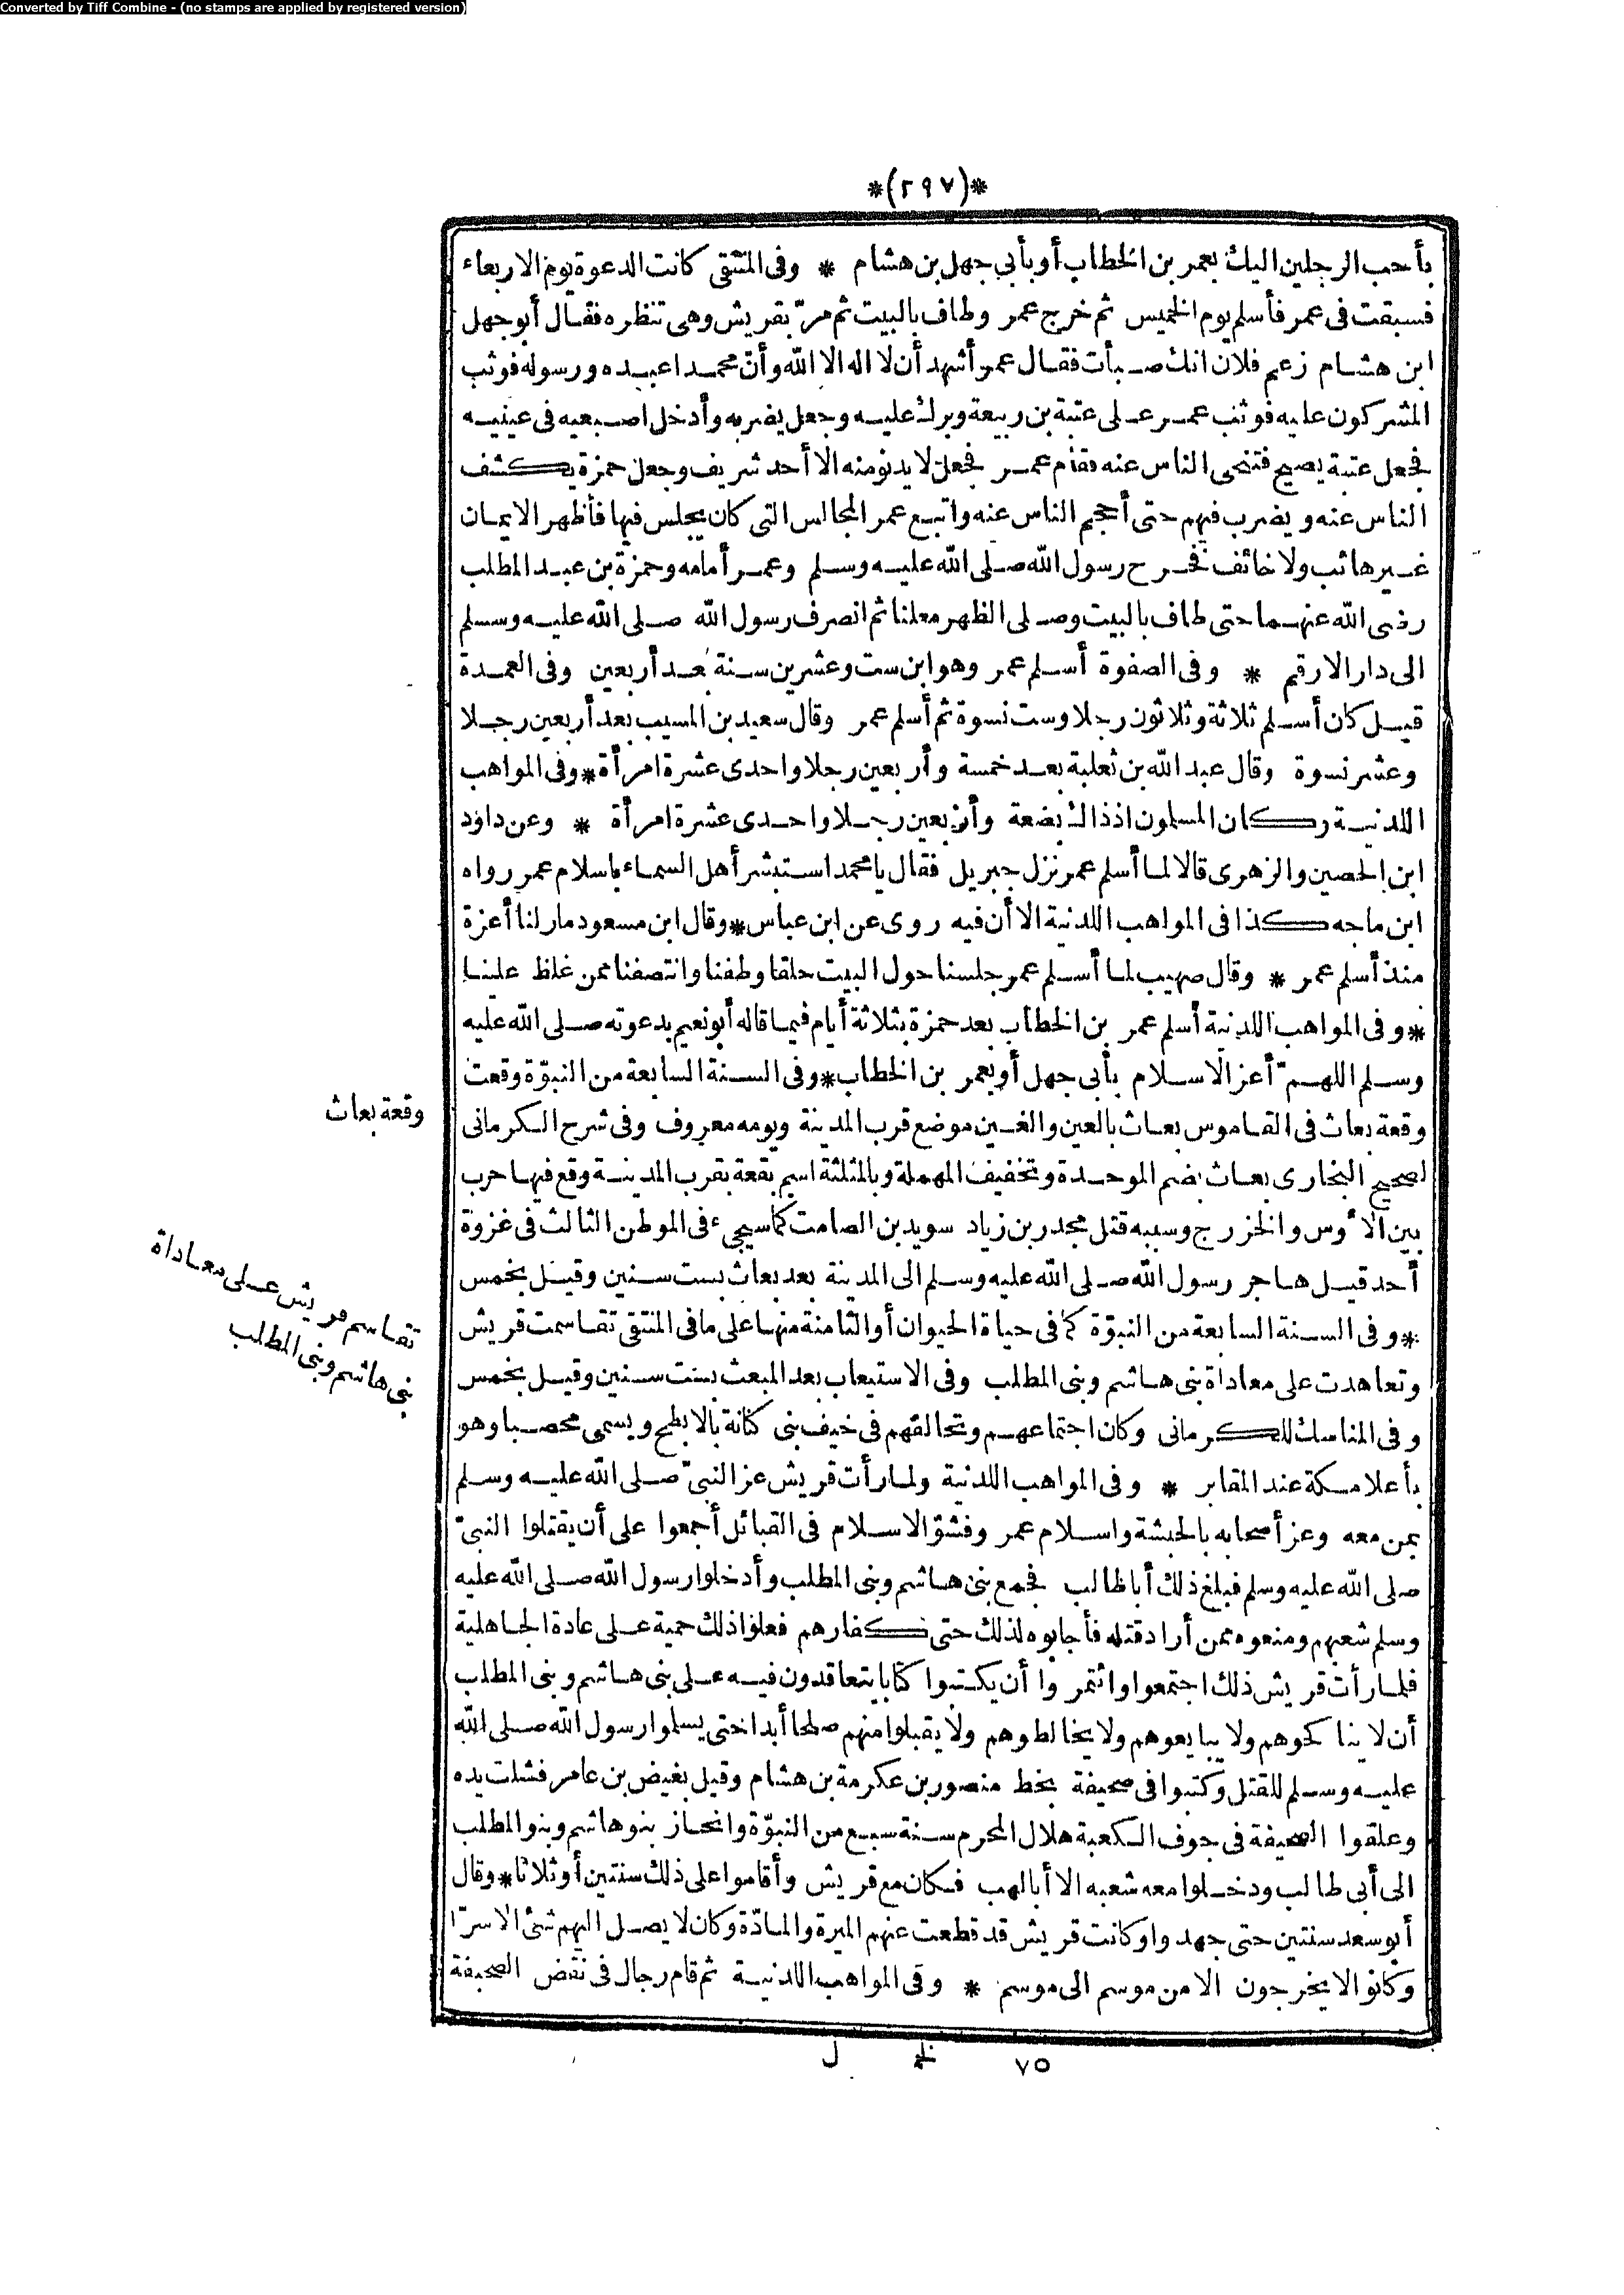 Converted by Tiff Combine - (no stamps are applied by registered version)
*(٢٩٧)*
بأحب الرجلين اليك بعمر بن الخطاب أو بأبي جهل بن هشام * وفى المنتقى كانت الدعوة يوم الاربعاء
فسبقت فى عمر فأسلم يوم الخميس ثم خرج عمر وطاف بالبيت ثم مرّ بقريش وهى تنظره فقال أبو جهل
ابن هشام زعم فلان انك صبأت فقال عمر أشهد أن لا اله الا الله وأنّ محمدا عبده ورسوله فوثب
المشركون عليه فوثب عمر على عتبة بن ربيعة وبرك عليه وجعل يضربه وأدخل اصبعيه فى عينيه
فجعل عتبة يصيح فتنحى الناس عنه فقام عمر فجعل لا يدنو منه الا أحد شريف وجعل حمزة يكشف
الناس عنه ويضرب فيهم حتى أحجم الناس عنه واتبع عمر المجالس التى كان يجلس فيها فأظهر الايمان
غير هائب ولا خائف فخرج رسول الله صلى الله عليه وسلم وعمر أمامه وحمزة بن عبد المطلب
رضى الله عنهما حتى طاف بالبيت وصلى الظهر معلنا ثم انصرف رسول الله صلى الله عليه وسلم
الى دار الارقم * وفى الصفوة أسلم عمر وهو ابن ست وعشرين سنة بعد أربعين وفى العمدة
قيل كان أسلم ثلاثة وثلاثون رجلا وست نسوة ثم أسلم عمر وقال سعيد بن المسيب بعد أربعين رجلا
وعشر نسوة وقال عبد الله بن ثعلبة بعد خمسة وأربعين رجلا واحدى عشرة امرأة * وفى المواهب
اللدنية وكان المسلمون اذ ذاك بضعة وأربعين رجلا واحدى عشرة امرأة * وعن داود
ابن الحصين والزهرى قالا لما أسلم عمر نزل جبريل فقال يا محمد استبشر أهل السماء باسلام عمر رواه
ابن ماجه كذا فى المواهب اللدنية الا أن فيه روى عن ابن عباس * وقال ابن مسعود مازلنا أعزة
منذ أسلم عمر * وقال صهيب لما أسلم عمر جلسنا حول البيت حلقا وطفنا وانتصفنا ممن غلظ علينا
* وفى المواهب اللدنية أسلم عمر بن الخطاب بعد حمزة بثلاثة أيام فيما قاله أبو نعيم بدعوته صلى الله عليه
وسلم اللهم أعز الاسلام بأبى جهل أو بعمر بن الخطاب * وفى السنة السابعة من النبوّة وقعت
وقعة بعاث
وقعة بعاث فى القاموس بعاث بالعين والغين موضع قرب المدينة ويومه معروف وفى شرح الكرمانى
لصحيح البخارى بعاث بضم الموحدة وتخفيف المهملة وبالمثلثة اسم بقعة بقرب المدينة وقع فيها حرب
بين الأوس والخزرج وسببه قتل مجذر بن زياد سويد بن الصامت كما سيجىء فى الموطن الثالث فى غزوة
أحد قيل هاجر رسول الله صلى الله عليه وسلم الى المدينة بعد بعاث بست سنين وقيل بخمس
* وفى السنة السابعة من النبوّة كما فى حياة الحيوان أو الثامنة منها على ما فى المنتقى تقاسمت قريش
تقاسم قريش على معاداة
بنى هاشم وبنى المطلب
وتعاهدت على معاداة بنى هاشم وبنى المطلب وفى الاستيعاب بعد المبعث بست سنين وقيل بخمس
وفى المناسك للكرمانى وكان اجتماعهم وتحالفهم فى خيف بنى كنانة بالابطح ويسمى محصبا وهو
بأعلا مكة عند المقابر * وفى المواهب اللدنية ولما رأت قريش عز النبىّ صلى الله عليه وسلم
بمن معه وعز أصحابه بالحبشة واسلام عمر وفشوّ الاسلام فى القبائل أجمعوا على أن يقتلوا النبىّ
صلى الله عليه وسلم فبلغ ذلك أبا طالب فجمع بنى هاشم وبنى المطلب وأدخلوا رسول الله صلى الله عليه
وسلم شعبهم ومنعوه ممن أراد قتله فأجابوه لذلك حتى كفارهم فعلوا ذلك حمية على عادة الجاهلية
فلما رأت قريش ذلك اجتمعوا وائتمروا أن يكتبوا كتابا يتعاقدون فيه على بنى هاشم وبنى المطلب
أن لا يناكحوهم ولا يبايعوهم ولا يخالطوهم ولا يقبلوا منهم صلحا أبدا حتى يسلموا رسول الله صلى الله
عليه وسلم للقتل وكتبوا فى صحيفة بخط منصور بن عكرمة بن هشام وقيل بغيض بن عامر فشلت يده
وعلقوا الصحيفة فى جوف الكعبة هلال المحرم سنة سبع من النبوّة وانحاز بنو هاشم وبنو المطلب
الى أبى طالب ودخلوا معه شعبه الا أبا لهب فكان مع قريش وأقاموا على ذلك سنتين أو ثلاثا * وقال
أبو سعد سنتين حتى جهدوا وكانت قريش قد قطعت عنهم الميرة والمادّة وكان لا يصل اليهم شئ الا سرّا
وكانوا لا يخرجون الا من موسم الى موسم * وفى المواهب اللدنية ثم قام رجال فى نقض الصحيفة
٧٥ ل